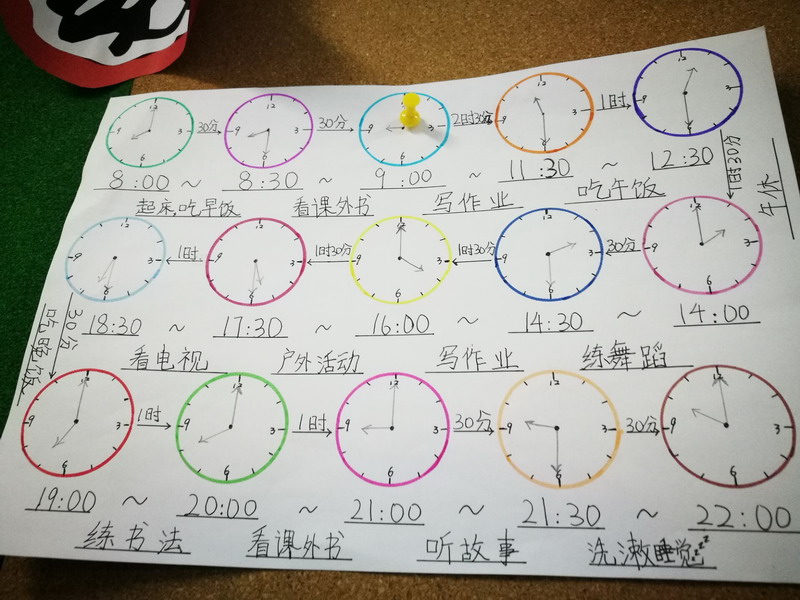 30分 30分 2时30分 1时
8:00 ~ 8:30 ~ 9:00 ~ 11:30 ~ 12:30
起床,吃早饭 看课外书 写作业 吃午饭
1时30分
午休
1时 1时30分 1时30分 30分
18:30 ~ 17:30 ~ 16:00 ~ 14:30 ~ 14:00
看电视 户外活动 写作业 练舞蹈
30分
吃晚饭
1时 1时 30分 30分
19:00 ~ 20:00 ~ 21:00 ~ 21:30 ~ 22:00
练书法 看课外书 听故事 洗漱睡觉zzz